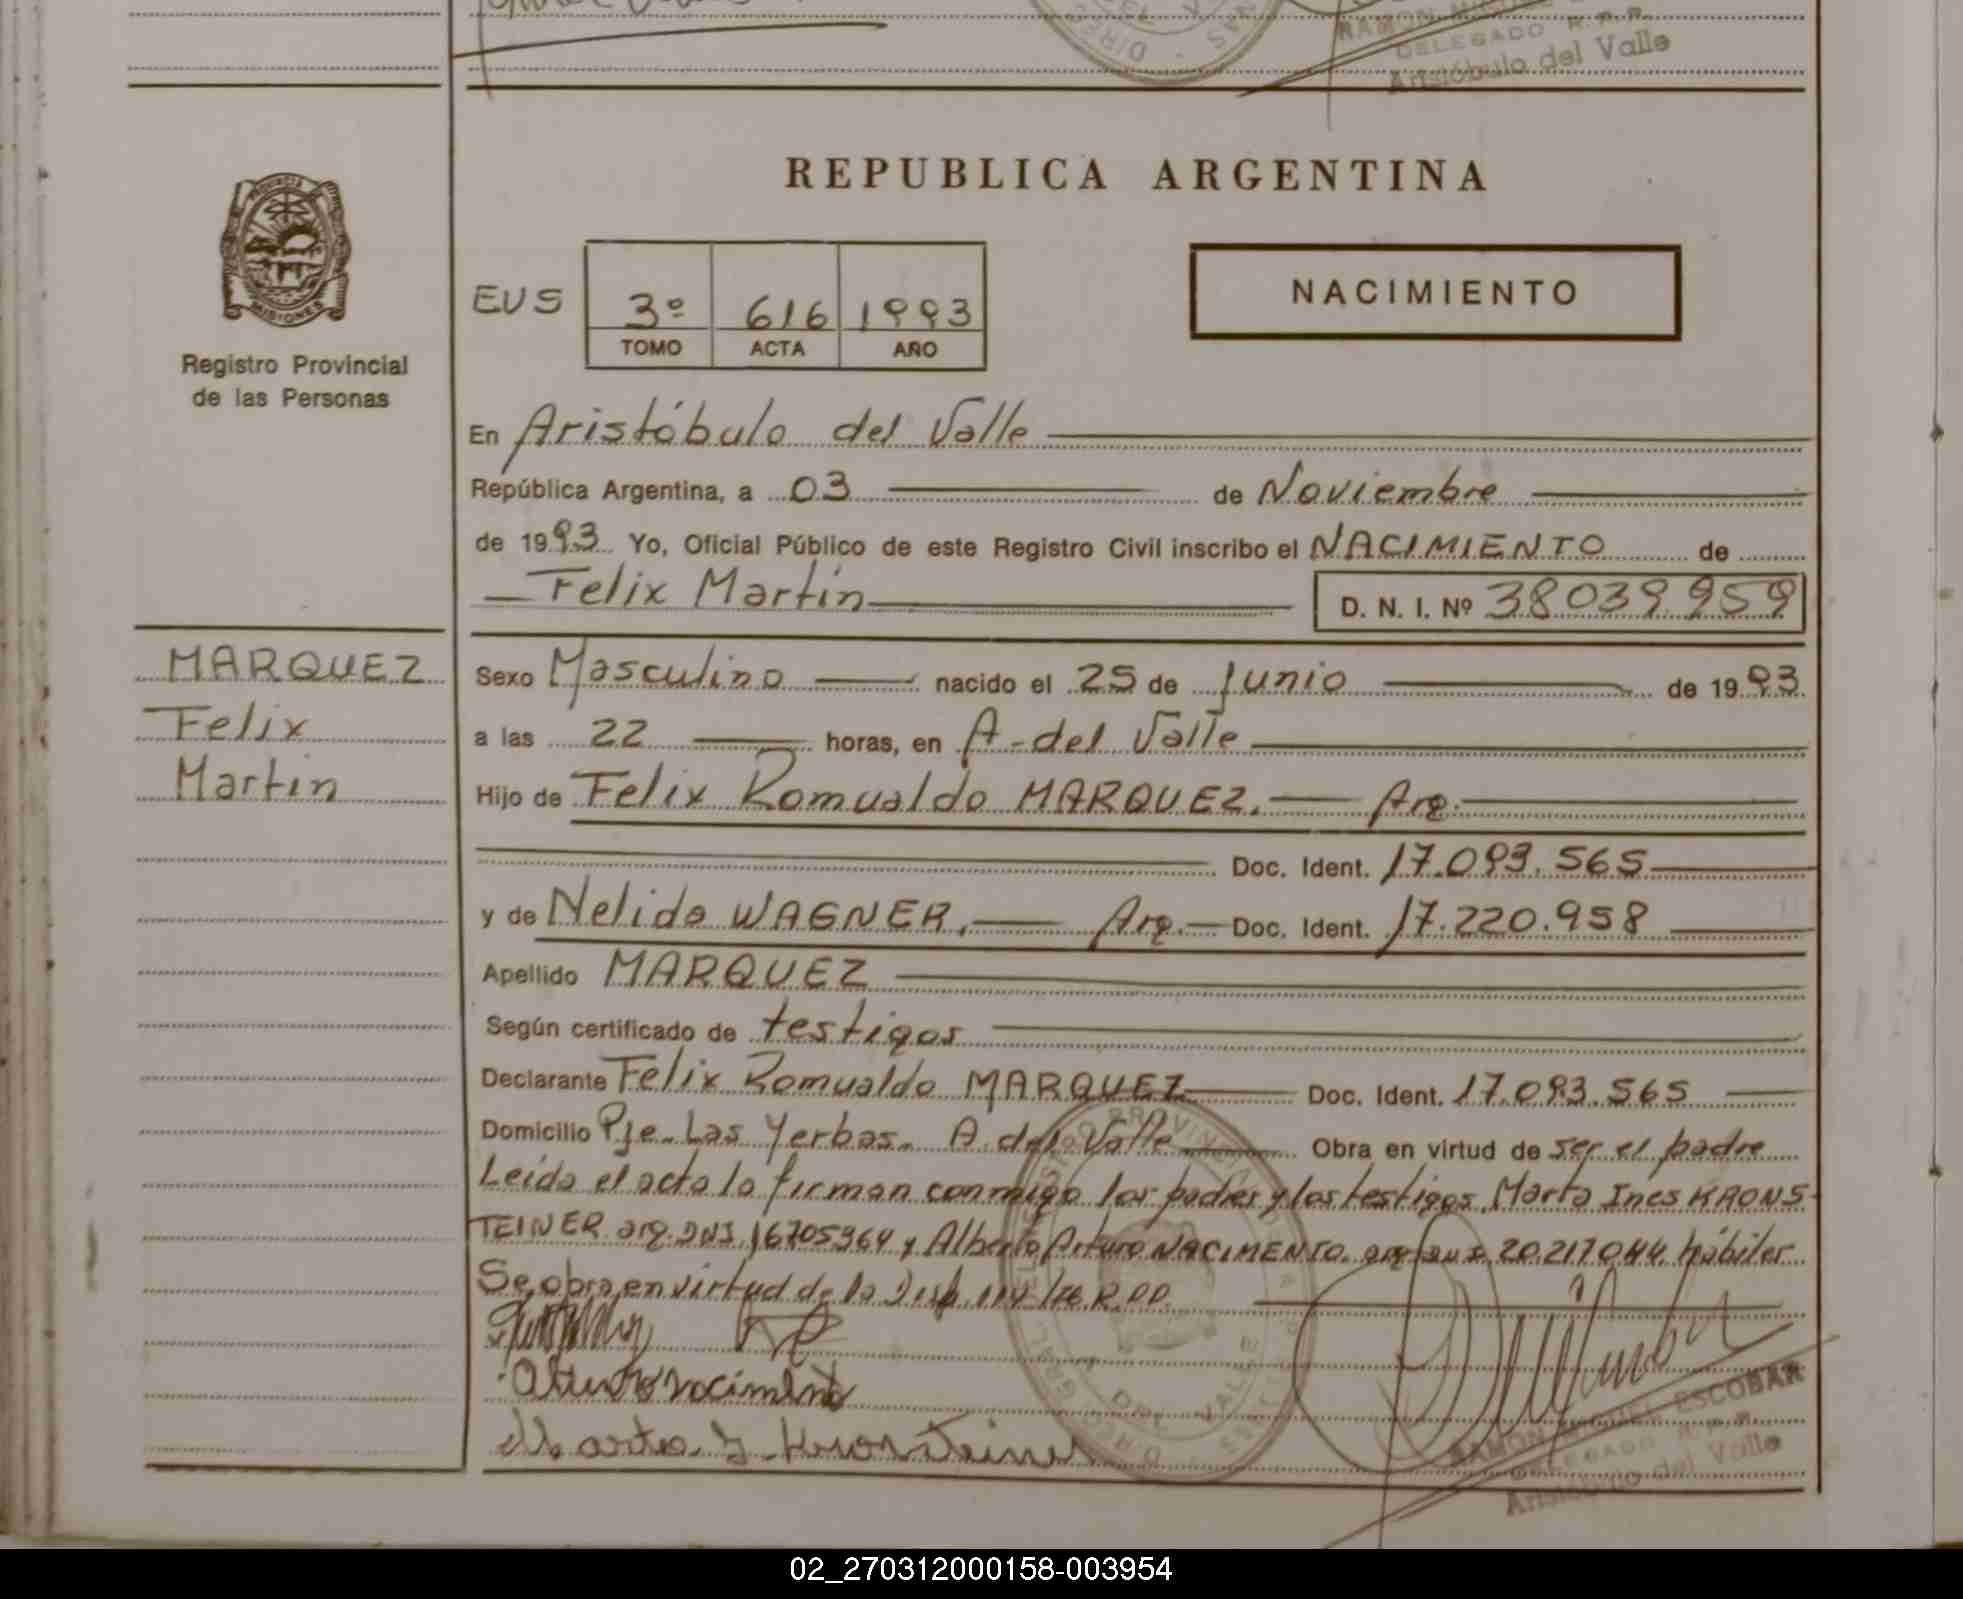 RAMON MIGUEL
DELEGADO R.P.P.
Aristóbulo del Valle
REPUBLICA ARGENTINA
PROVINCIA
MISIONES
Registro Provincial
de las Personas
EUS 3º 616 1993
TOMO ACTA AÑO
NACIMIENTO
En Aristóbulo del Valle
República Argentina, a 03 de Noviembre
de 1993 Yo, Oficial Público de este Registro Civil inscribo el NACIMIENTO de
Felix Martin D. N. I. Nº 38039959
MARQUEZ
Felix
Martin
Sexo Masculino nacido el 25 de Junio de 1993.
a las 22 horas, en A. del Valle
Hijo de Felix Romualdo MARQUEZ. Arg.
Doc. Ident. 17.093.565
y de Nelida WAGNER. Arg. Doc. Ident. 17.220.958
Apellido MARQUEZ
Según certificado de testigos
Declarante Felix Romualdo MARQUEZ Doc. Ident. 17.093.565
Domicilio Pje. Las Yerbas. A. del Valle Obra en virtud de ser el padre
Leida el acta la firman conmigo los padres y los testigos Marta Ines KRONS
TEINER arg. DNI. 16705964 y Alberto Arturo NACIMENTO. arg DNI. 20.217.044. hábiles.
Se obra en virtud de la Disp.
Marta I. Kronsteiner
RAMON MIGUEL ESCOBAR
DELEGADO R.P.P.
Aristóbulo del Valle
02_270312000158-003954